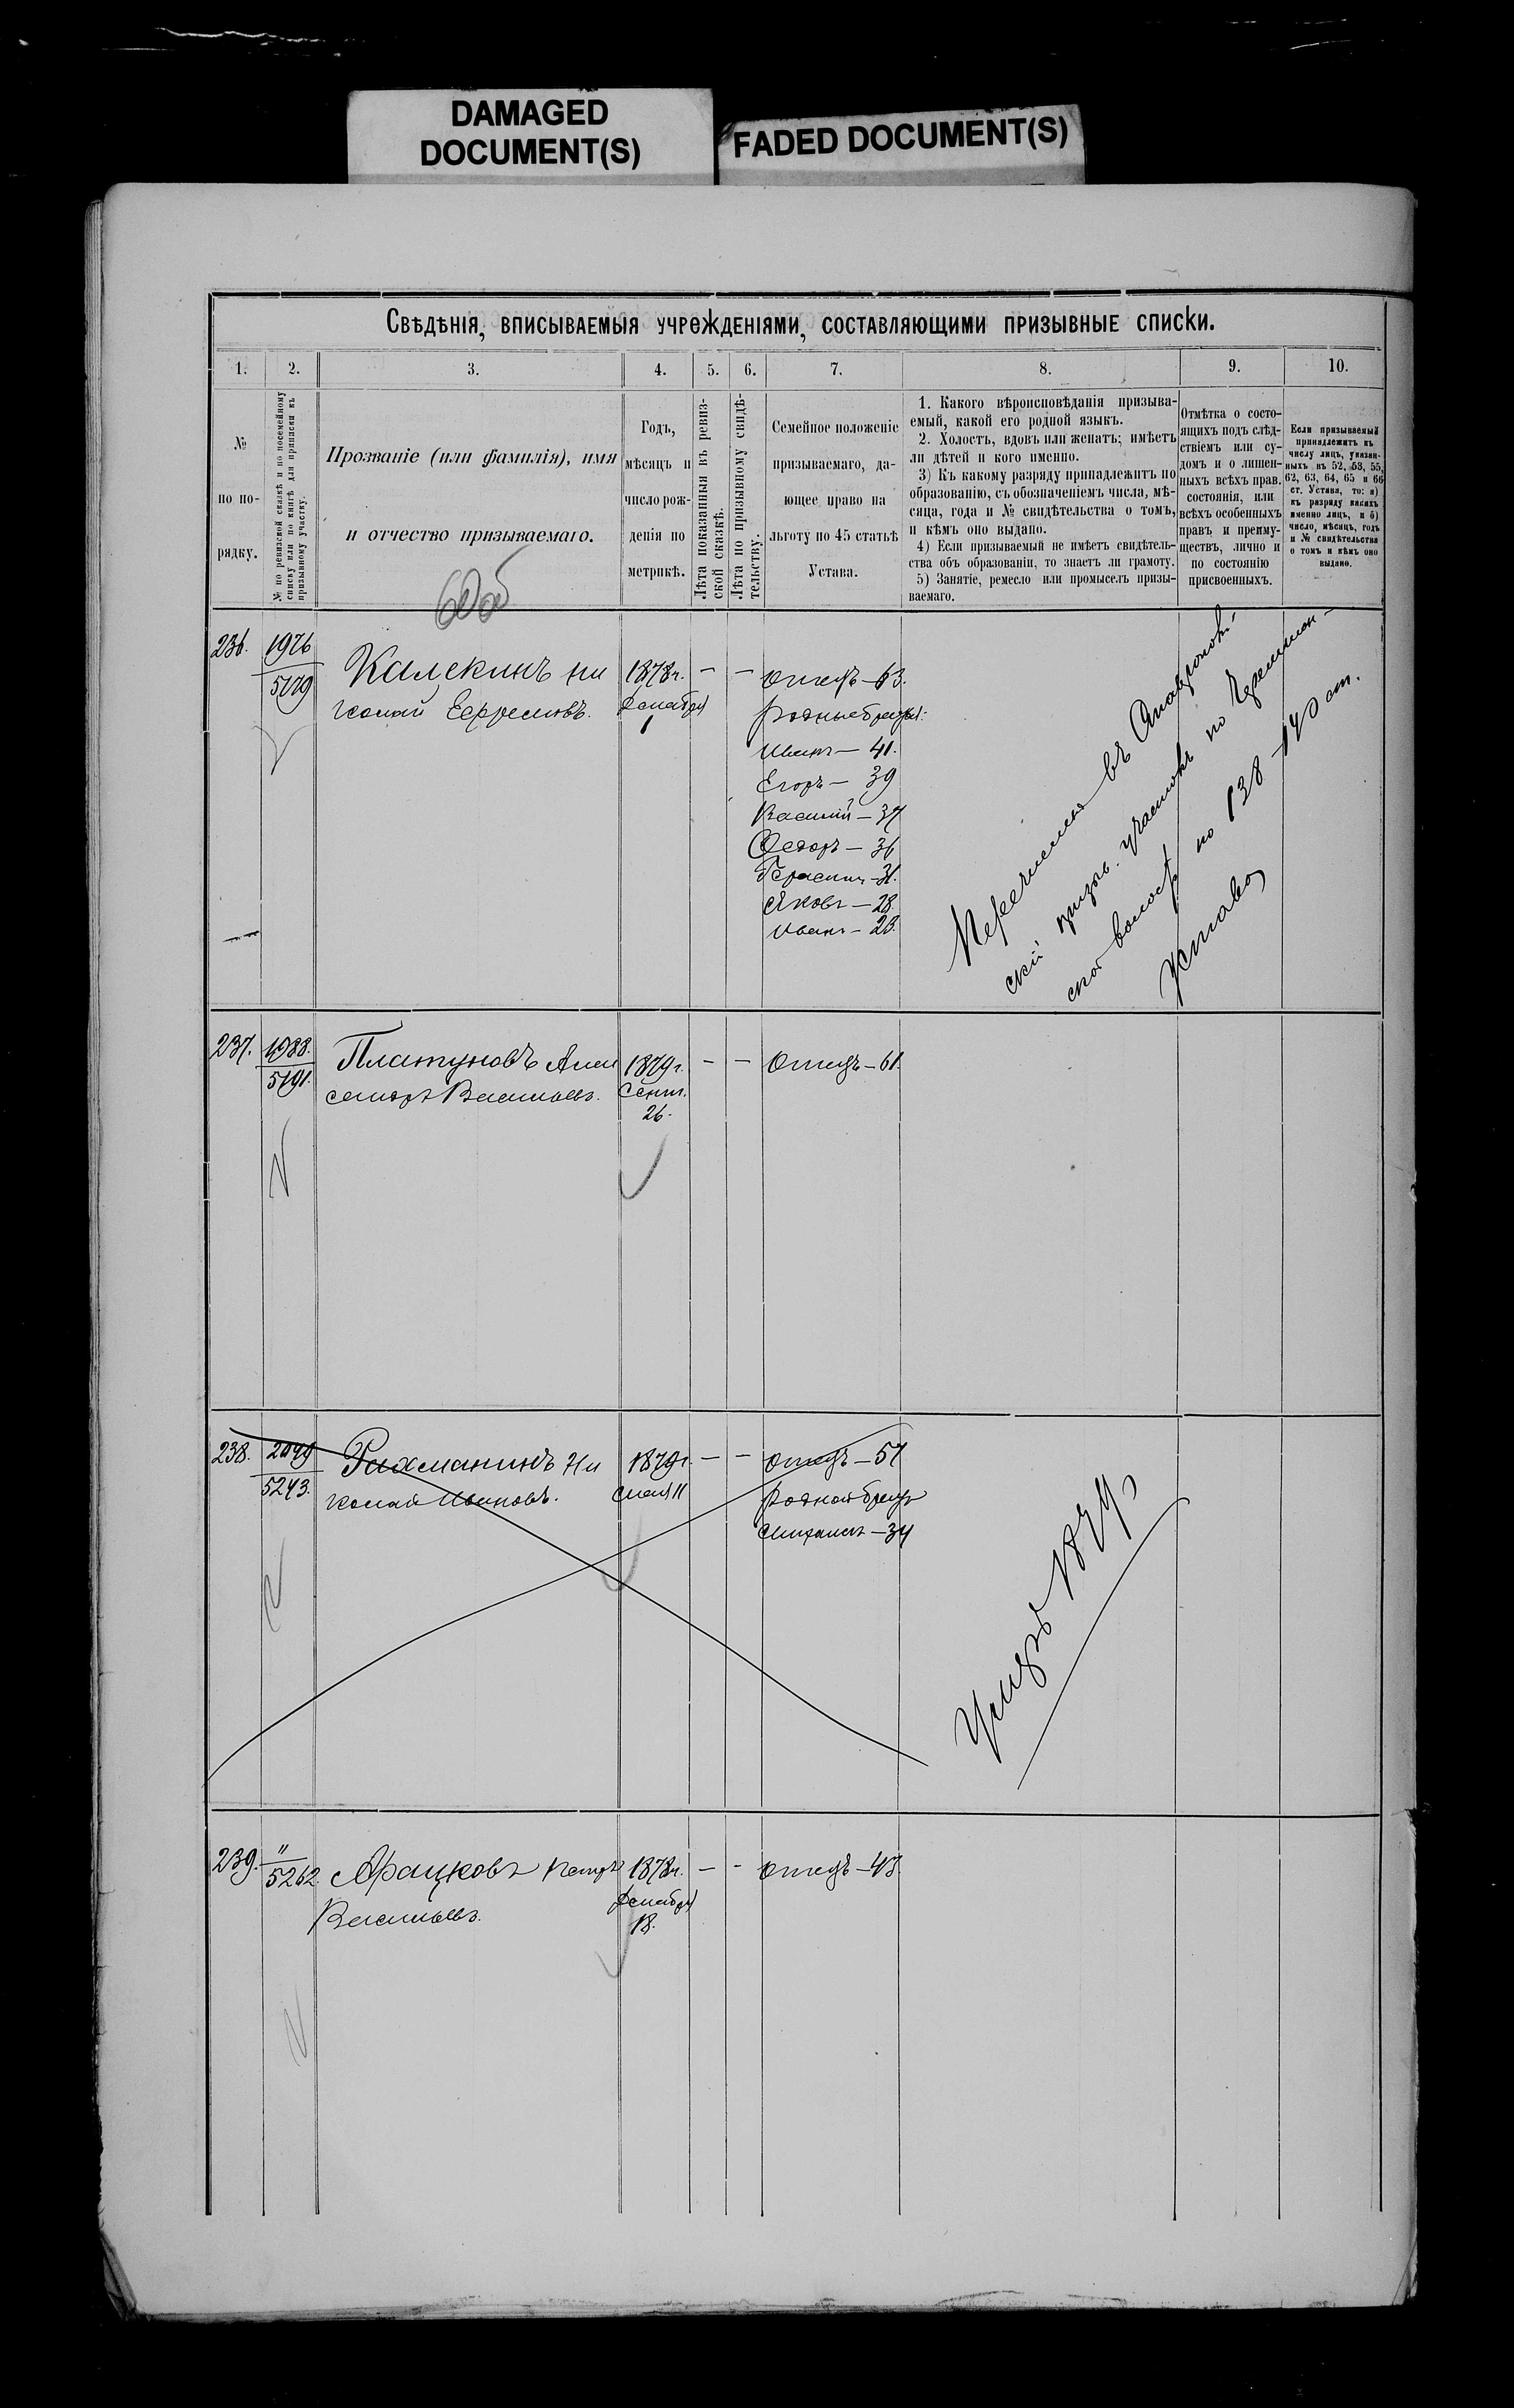 DAMAGED
DOCUMENT(S)
FADED DOCUMENT(S)
Свѣдѣнія, вписываемыя учрежденіями, составляющими призывные списки.
1. 2. 3. 4. 5. 6. 7. 8. 9. 10.
№
по по-
рядку.
№ по ревизской сказкѣ и по посемейному
списку или по книгѣ для приписки къ
призывному участку.
Прозваніе (или фамилія), имя
и отчество призываемаго.
Годъ,
мѣсяцъ и
число рож-
денія по
метрикѣ.
Лѣта показанныя въ ревиз-
ской сказкѣ.
Лѣта по призывному свидѣ-
тельству.
Семейное положеніе
призываемаго, да-
ющее право на
льготу по 45 статьѣ
Устава.
1. Какого вѣроисповѣданія призыва-
емый, какой его родной языкъ.
2. Холостъ, вдовъ или женатъ; имѣетъ
ли дѣтей и кого именно.
3) Къ какому разряду принадлежитъ по
образованію, съ обозначеніемъ числа, мѣ-
сяца, года и № свидѣтельства о томъ,
и кѣмъ оно выдано.
4) Если призываемый не имѣетъ свидѣтель-
ства объ образованіи, то знаетъ ли грамоту.
5) Занятіе, ремесло или промыселъ призы-
ваемаго.
Отмѣтка о состо-
ящихъ подъ слѣд-
ствіемъ или су-
домъ и о лишен-
ныхъ всѣхъ прав.
состоянія, или
всѣхъ особенныхъ
правъ и преиму-
ществъ, лично и
по состоянію
присвоенныхъ.
Если призываемый
принадлежитъ къ
числу лицъ, указан-
ныхъ въ 52, 53, 55,
62, 63, 64, 65 и 66
ст. Устава, то: а)
къ разряду какихъ
именно лицъ, и б)
число, мѣсяцъ, годъ
и № свидѣтельства
о томъ и кѣмъ оно
выдано.
236. 1976
5179
Калекинъ Ни
колай Ефремовъ.
1878г.
Декабря
1
— —
Отецъ — 63.
Родные братья:
Иванъ — 41.
Егоръ — 39
Василій — 37
Федоръ — 36
Герасимъ — 31.
Яковъ — 28.
Иванъ — 23.
Перечисленъ въ
скій призыв. участокъ по
ской волости по 138–140 ст.
Устава
237. 1988.
5191.
Платуновъ Алек
сандръ Васильевъ.
1879г.
Сент.
26.
— —
Отецъ — 61.
238. 2049
5243.
Рахманинъ Ни
колай Ивановъ.
1879г.
Мая 11
— —
Отецъ — 57
Родной братъ
Михаилъ — 34
239. "
5262.
Арацковъ Петръ
Васильевъ.
1878г.
Декабря
18.
— —
Отецъ — 43.